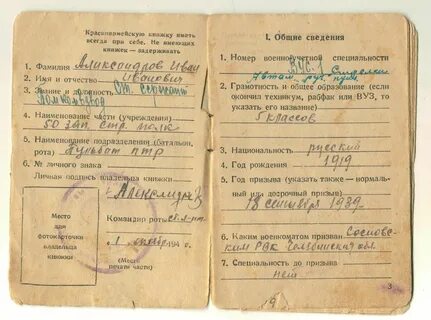 Красноармейскую книжку иметь
всегда при себе. Не имеющих
книжек — задерживать
1. Фамилия Александров Иван
2. Имя и отчество Иванович
3. Звание и должность От. Сержант
Помкомвзвод
4. Наименование части (учреждения)
50 зап. стр. полк
5. Наименование подразделения (батальон,
рота) птр
6. № личного знака
Личная подпись владельца книжки
Командир роты
1 194 г.
(Место
печати части)
Место
для
фотокарточки
владельца
книжки
I. Общие сведения
1. Номер военноучетной специальности
ВУС-1
2. Грамотность и общее образование (если
окончил техникум, рабфак или ВУЗ, то
указать его название)
5 классов
3. Национальность русский
4. Год рождения 1919
5. Год призыва (указать также — нормаль-
ный или досрочный призыв)
18 сентября 1939
6. Каким военкоматом призван Сосновс-
ким РВК Челябинская обл.
7. Специальность до призыва
нет
3